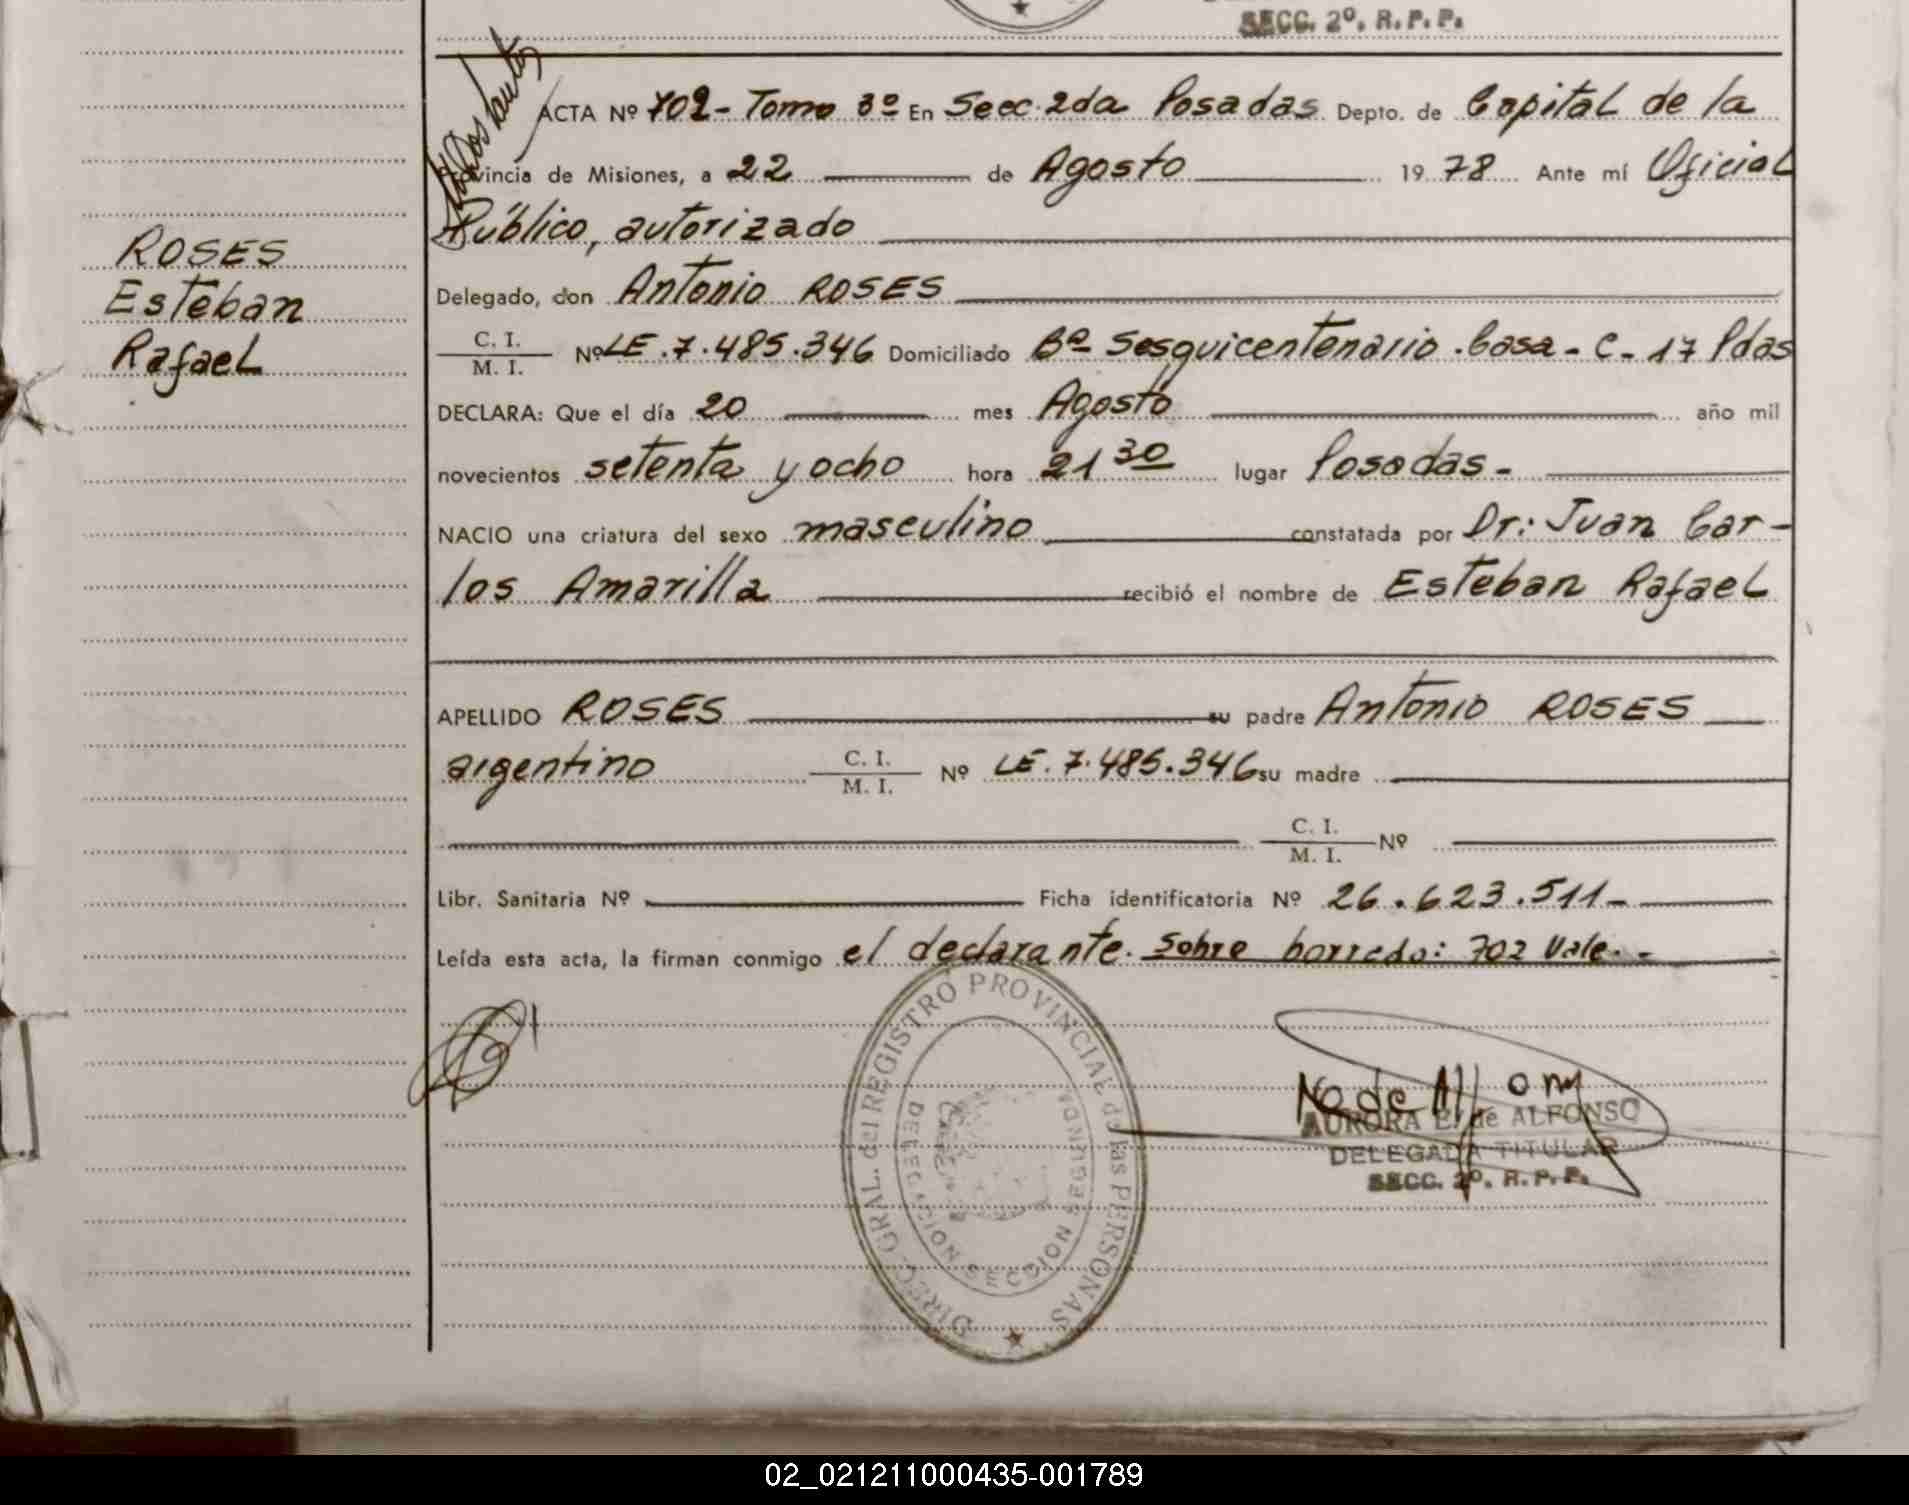 SECC. 2º. R. P. P.
ACTA Nº 702- Tomo 3º En Secc. 2da Posadas Depto. de Capital de la
Provincia de Misiones, a 22 de Agosto 19 78 Ante mí Oficial
Público, autorizado
ROSES
Esteban
Rafael
Delegado, don Antonio ROSES
C. I.
M. I.
Nº LE. 7.485.346 Domiciliado Bº Sesquicentenario. Casa - C - 17 Pdas
DECLARA: Que el día 20 mes Agosto año mil
novecientos setenta y ocho hora 21 30 lugar Posadas -
NACIO una criatura del sexo masculino constatada por Dr: Juan Car-
los Amarilla recibió el nombre de Esteban Rafael
APELLIDO ROSES su padre Antonio ROSES
argentino C. I. / M. I. Nº LE. 7.485.346 su madre
C. I. / M. I. Nº
Libr. Sanitaria Nº Ficha identificatoria Nº 26.623.511-
Leída esta acta, la firman conmigo el declarante. Sobre borrado: 702 Vale. -
DIREC. GRAL. del REGISTRO PROVINCIAL de las PERSONAS
DELEGACION SECCION SEGUNDA
AURORA E. de ALFONSO
DELEGADA TITULAR
SECC. 2º. R. P. P.
02_021211000435-001789